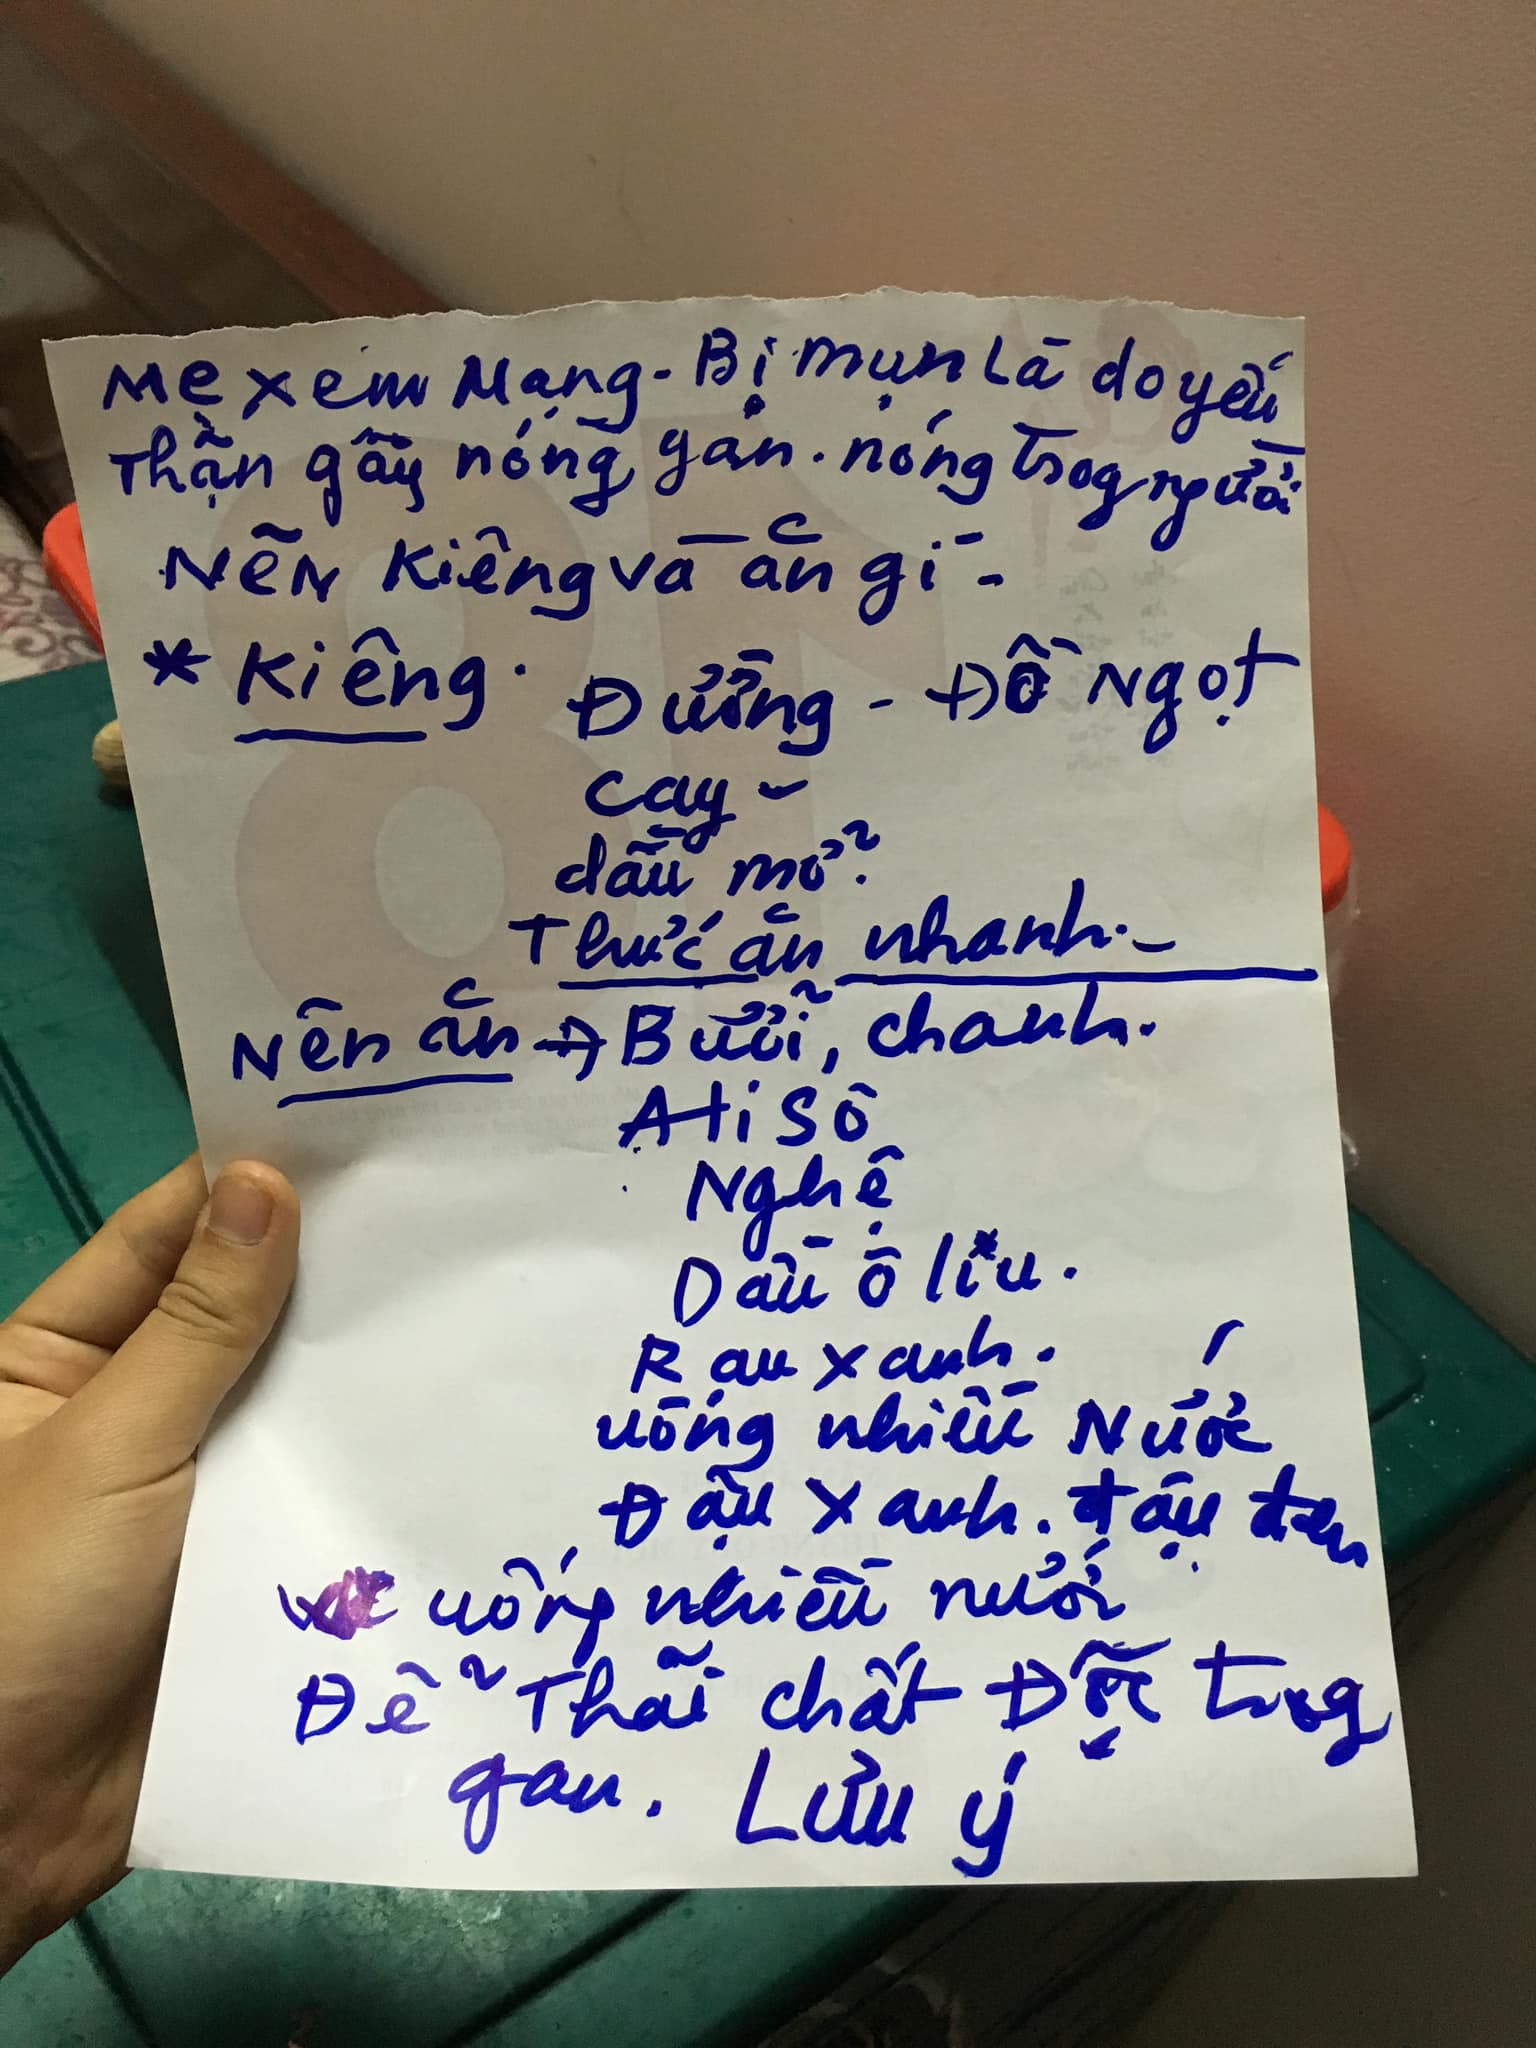 Mẹ xem Mạng - Bị mụn là do yếu
Thận gây nóng gan. nóng trog người
NÊN Kiêng và ăn gì -
* Kiêng. Đường - Đồ Ngọt
cay -
dầu mở.
Thức ăn nhanh. -
Nên ăn → Bưởi, chanh.
AtiSô
Nghệ
Dầu ô liu.
Rau xanh.
uống nhiều Nước
Đậu xanh. đậu đen
uống nhiều nước
Để Thải chất Độc trog
gan. Lưu ý